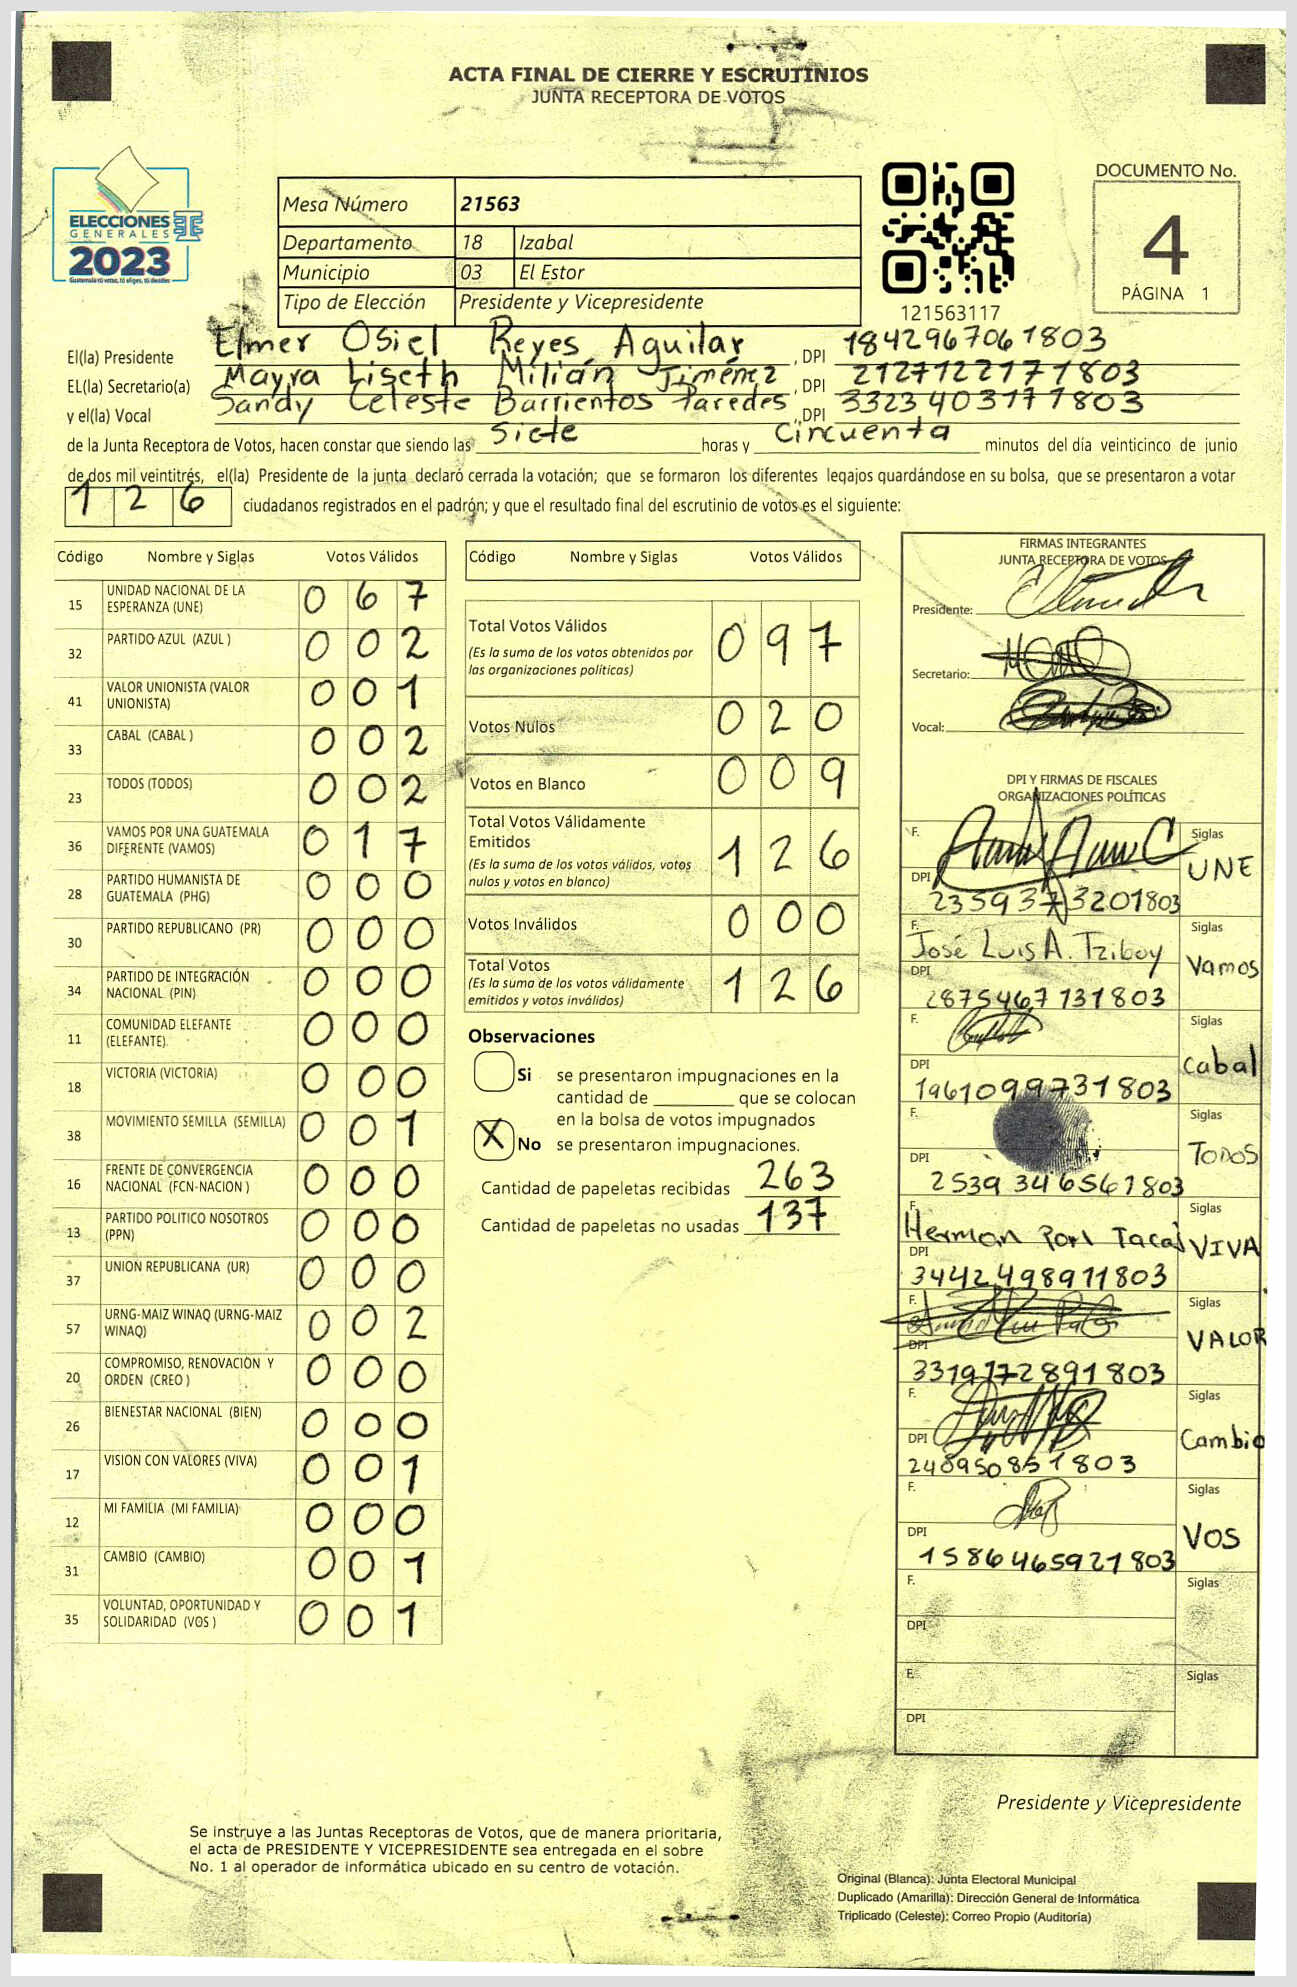 ACTA FINAL DE CIERRE Y ESCRUTINIOS
JUNTA RECEPTORA DE VOTOS
ELECCIONES
GENERALES
2023
DOCUMENTO No.
4
PÁGINA 1
Mesa Número 21563
Departamento 18 Izabal
Municipio 03 El Estor
Tipo de Elección Presidente y Vicepresidente
121563117
El(la) Presidente Elmer Osiel Reyes Aguilar, DPI 1842967061803
EL(la) Secretario(a) Mayra Liseth Milián Jiménez, DPI 2127122171803
y el(la) Vocal Sandy Celeste Barrientos Paredes, DPI 3323403171803
de la Junta Receptora de Votos, hacen constar que siendo las siete horas y cincuenta minutos del día veinticinco de junio
de dos mil veintitrés, el(la) Presidente de la junta declaró cerrada la votación; que se formaron los diferentes legajos guardándose en su bolsa, que se presentaron a votar
126 ciudadanos registrados en el padrón; y que el resultado final del escrutinio de votos es el siguiente:
Código Nombre y Siglas Votos Válidos
15 UNIDAD NACIONAL DE LA ESPERANZA (UNE) 067
32 PARTIDO AZUL (AZUL ) 002
41 VALOR UNIONISTA (VALOR UNIONISTA) 001
33 CABAL (CABAL ) 002
23 TODOS (TODOS) 002
36 VAMOS POR UNA GUATEMALA DIFERENTE (VAMOS) 017
28 PARTIDO HUMANISTA DE GUATEMALA (PHG) 000
30 PARTIDO REPUBLICANO (PR) 000
34 PARTIDO DE INTEGRACIÓN NACIONAL (PIN) 000
11 COMUNIDAD ELEFANTE (ELEFANTE) 000
18 VICTORIA (VICTORIA) 000
38 MOVIMIENTO SEMILLA (SEMILLA) 001
16 FRENTE DE CONVERGENCIA NACIONAL (FCN-NACION ) 000
13 PARTIDO POLITICO NOSOTROS (PPN) 000
37 UNION REPUBLICANA (UR) 000
57 URNG-MAIZ WINAQ (URNG-MAIZ WINAQ) 002
20 COMPROMISO, RENOVACIÓN Y ORDEN (CREO ) 000
26 BIENESTAR NACIONAL (BIEN) 000
17 VISION CON VALORES (VIVA) 001
12 MI FAMILIA (MI FAMILIA) 000
31 CAMBIO (CAMBIO) 001
35 VOLUNTAD, OPORTUNIDAD Y SOLIDARIDAD (VOS ) 001
Código Nombre y Siglas Votos Válidos
Total Votos Válidos 097
(Es la suma de los votos obtenidos por
las organizaciones políticas)
Votos Nulos 020
Votos en Blanco 009
Total Votos Válidamente
Emitidos 126
(Es la suma de los votos válidos, votos
nulos y votos en blanco)
Votos Inválidos 000
Total Votos 126
(Es la suma de los votos válidamente
emitidos y votos inválidos)
Observaciones
Si se presentaron impugnaciones en la
cantidad de ________ que se colocan
en la bolsa de votos impugnados
X No se presentaron impugnaciones.
Cantidad de papeletas recibidas 263
Cantidad de papeletas no usadas 137
FIRMAS INTEGRANTES
JUNTA RECEPTORA DE VOTOS
Presidente:
Secretario:
Vocal:
DPI Y FIRMAS DE FISCALES
ORGANIZACIONES POLÍTICAS
F. Siglas UNE
DPI 2359373201803
F. José Luis A. Tziboy Siglas Vamos
DPI 2875467131803
F. Siglas Cabal
DPI 1961099731803
F. Siglas TODOS
DPI 2539346561803
F. Herman Siglas VIVA
DPI 3442498911803
F. Siglas VALOR
DPI 3319172891803
F. Siglas Cambio
DPI 248950851803
F. Siglas VOS
DPI 1586465921803
F. Siglas
DPI
F. Siglas
DPI
Presidente y Vicepresidente
Se instruye a las Juntas Receptoras de Votos, que de manera prioritaria,
el acta de PRESIDENTE Y VICEPRESIDENTE sea entregada en el sobre
No. 1 al operador de informática ubicado en su centro de votación.
Original (Blanca): Junta Electoral Municipal
Duplicado (Amarilla): Dirección General de Informática
Triplicado (Celeste): Correo Propio (Auditoría)